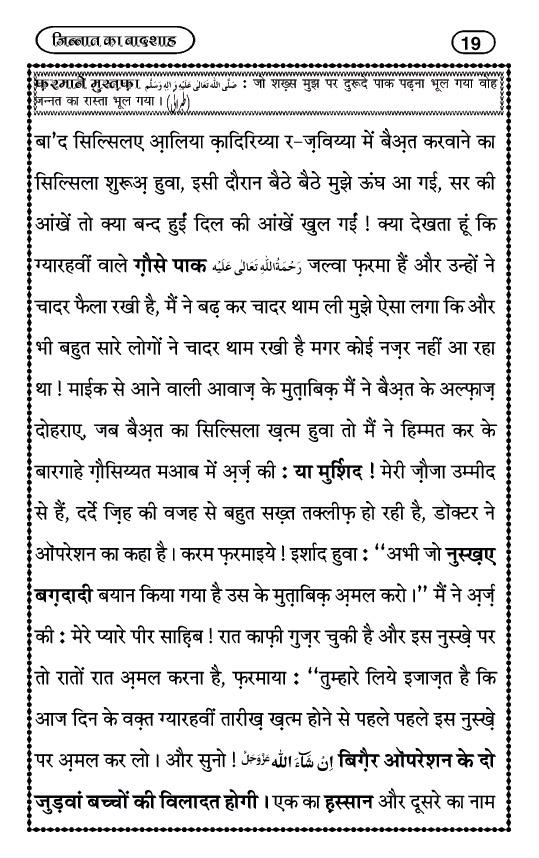 जिन्नात का बादशाह
19
फ़रमाने मुस्तफ़ा صَلَّى اللّٰهُ تَعَالٰى عَلَيْهِ وَاٰلِهٖ وَسَلَّم : जो शख़्स मुझ पर दुरूदे पाक पढ़ना भूल गया वोह
जन्नत का रास्ता भूल गया । (طبرانی)
बा'द सिल्सिलए आ़लिया क़ादिरिय्या र-ज़विय्या में बैअ़त करवाने का
सिल्सिला शुरूअ़ हुवा, इसी दौरान बैठे बैठे मुझे ऊंघ आ गई, सर की
आंखें तो क्या बन्द हुईं दिल की आंखें खुल गईं ! क्या देखता हूं कि
ग्यारहवीं वाले ग़ौसे पाक رَحْمَةُ اللّٰهِ تَعَالٰى عَلَيْه जल्वा फ़रमा हैं और उन्हों ने
चादर फैला रखी है, मैं ने बढ़ कर चादर थाम ली मुझे ऐसा लगा कि और
भी बहुत सारे लोगों ने चादर थाम रखी है मगर कोई नज़र नहीं आ रहा
था ! माईक से आने वाली आवाज़ के मुत़ाबिक़ मैं ने बैअ़त के अल्फ़ाज़
दोहराए, जब बैअ़त का सिल्सिला ख़त्म हुवा तो मैं ने हिम्मत कर के
बारगाहे ग़ौसिय्यत मआब में अ़र्ज़ की : या मुर्शिद ! मेरी ज़ौजा उम्मीद
से हैं, दर्दे ज़िह की वजह से बहुत सख़्त तक्लीफ़ हो रही है, डॉक्टर ने
ऑपरेशन का कहा है । करम फ़रमाइये ! इर्शाद हुवा : “अभी जो नुस्ख़ए
बग़दादी बयान किया गया है उस के मुत़ाबिक़ अ़मल करो ।” मैं ने अ़र्ज़
की : मेरे प्यारे पीर साह़िब ! रात काफ़ी गुज़र चुकी है और इस नुस्खे़ पर
तो रातों रात अ़मल करना है, फ़रमाया : “तुम्हारे लिये इजाज़त है कि
आज दिन के वक़्त ग्यारहवीं तारीख़ ख़त्म होने से पहले पहले इस नुस्खे़
पर अ़मल कर लो । और सुनो ! اِنْ شَآءَ اللّٰه عَزَّوَجَلَّ बिग़ैर ऑपरेशन के दो
जुड़वां बच्चों की विलादत होगी । एक का ह़स्सान और दूसरे का नाम